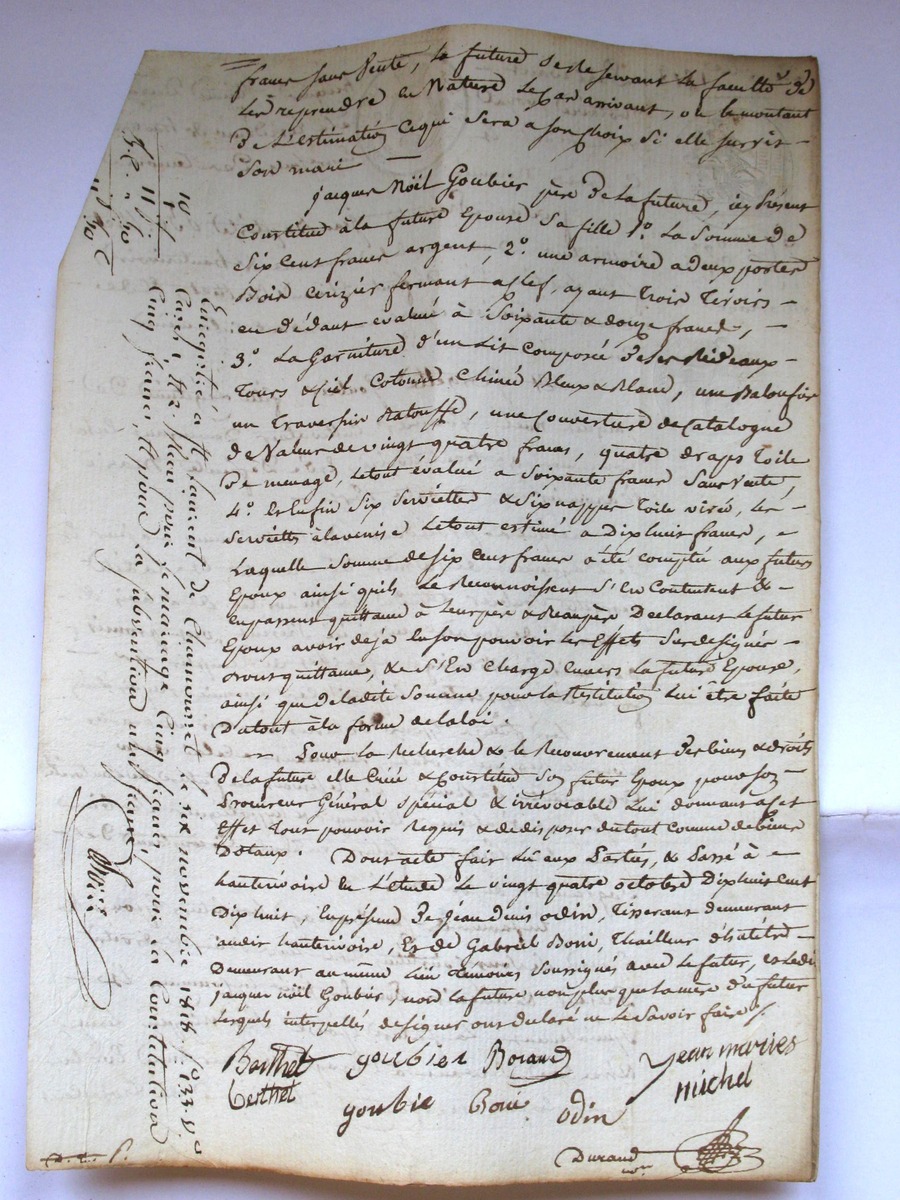 francs sans vente, la future se reservant la faculté de
les reprendre en Nature le cas arrivant, ou le montant
De L'estimation ce qui sera a son choix si elle survit
Son mari —
jacques Noël Goubier père De la future, icy Présent
Constitue à la future Epouse Sa fille 1º. La Somme De
Six Cent francs argent, 2º. une armoire a deux portes
Bois Cerizier fermant a clef, ayant Trois Tiroirs –
en dédant évalué à Soixante & douze francs, –
3º. La Garniture d'un Lit Composée De Ses Rideaux –
Tours & Ciel Cotonne Chinée Bleux & Blanc, une
un Traversin, une Couverture de Catalogne
De Valeur de vingt quatre francs, quatre draps Toile
De menage, le tout évalué a Soixante francs Sans vente,
4º. Et Enfin Six Serviettes & Six nappes Toile, les
Serviettes le tout estimé a Dix huit francs,
Laquelle Somme de Six Cent francs a été Compté aux futurs
Epoux ainsi qu'ils Le Reconnoissent S'en Contentent & –
en passent quittance à Leur père & Beaupère Declarant le futur
Epoux avoir deja En son pouvoir les Effets Sus designés –
dont quittance, & S'En Charge Envers la future Epouse,
ainsi que de ladite Somme pour la Restitution Lui etre faite
Du tout à la forme de la loi.
– Pour la Recherche & le Recouvrement Des biens & droits
De la future elle Créé & Constitue Son futur Epoux pour Son –
Procureur Général Spécial & irrévocable Lui donnant a cet
Effet Tout pouvoir Requis & de disposer du tout comme de biens
Dotaux. Dont acte fait Lu aux Parties, & Passé à –
hauterivoire En L'étude Le vingt quatre octobre Dix huit Cent
Dix huit, En présence De Jean Denis odin, Tisserant demeurant
audit hauterivoire, Et de Gabriel Boni, Thailleur d'habits –
Demeurant au même Lieu Témoins Soussignés avec Le futur,
jacques noël Goubier, non la future non plus que la mere du futur
Lesquels interpellés de Signer ont declaré ne Le Savoir faire /.
Berthet goubier Boiand jean maries
Berthet goubie Boni odin michel
Durand
Enregistré a St Laurent de Chamousset le six novembre 1818 fº 33 Vº
Cases & Reçu pour le mariage Cinq francs, pour la Constitution
Cinq francs, & pour la quittance un franc
10
1
11